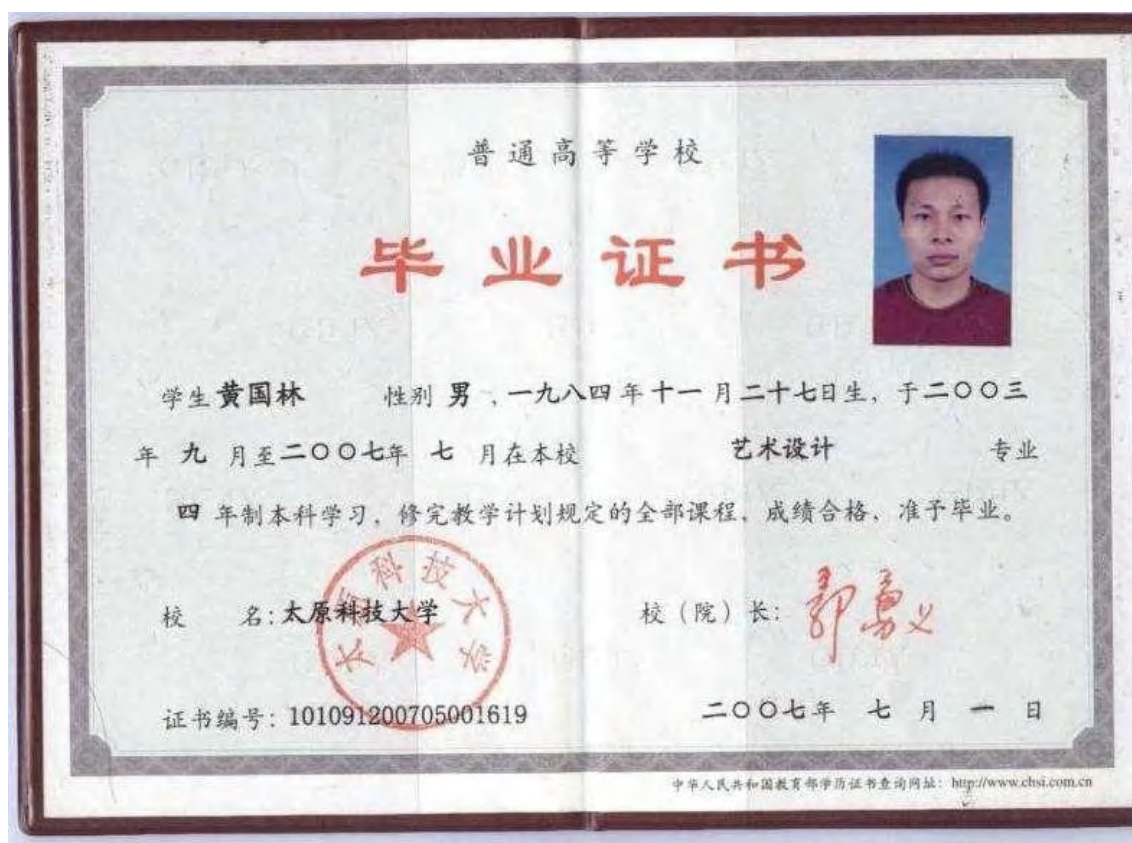 普通高等学校
毕业证书
学生 黄国林 性别 男 、一九八四年十一月二十七日生，于二〇〇三
年 九 月至二〇〇七年 七 月在本校 艺术设计 专业
四 年制本科学习，修完教学计划规定的全部课程、成绩合格、准予毕业。
太原科技大学
校 名：太原科技大学 校（院）长：郭勇义
证书编号：101091200705001619 二〇〇七年 七 月 一 日
中华人民共和国教育部学历证书查询网址：http://www.chsi.com.cn